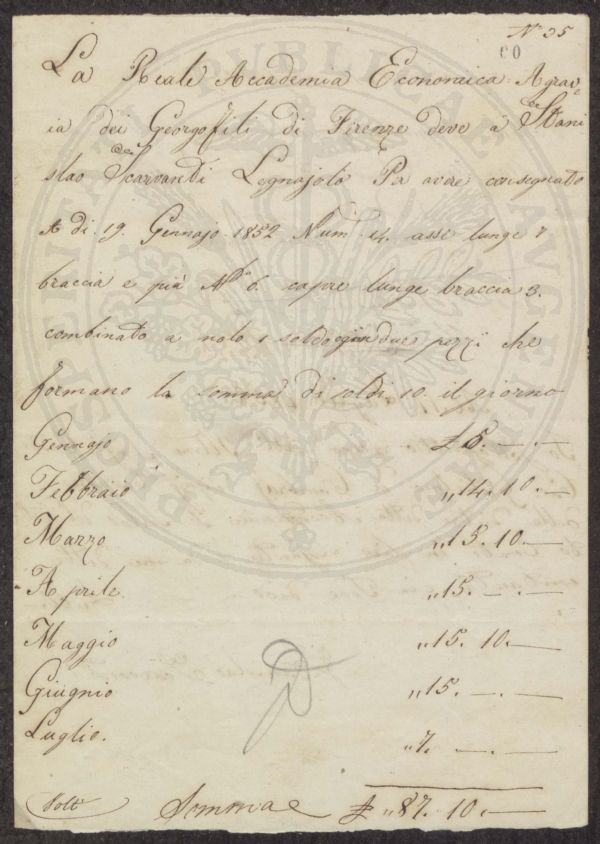 N° 25
60
La Reale Accademia Economica Agrar
ia dei Georgofili di Firenze deve a Stani
slao Scarvaretti Legnajolo Pa avere consegnato
A di 19. Gennajo 1852 Num. 14. asse lunge 7
braccia e più N° 6. capre lunge braccia 3.
combinato a nolo 1 soldo ogni due pezzi che
formano la somma di soldi 10. il giorno
Gennajo £ 6. — . —
Febbraio „ 14. 10. —
Marzo „ 15. 10. —
Aprile. „ 15. — . —
Maggio „ 15. 10. —
Giugnio „ 15. — . —
Luglio. „ 7. — . —
Volti Somma £ „ 87. 10. —
PROSPERITATI PUBLICAE AUGENDAE